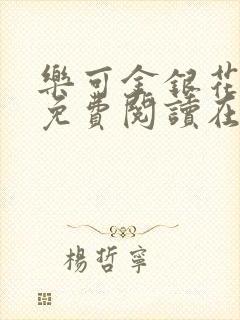 樂可金銀花
免費閱讀在
楊哲寧